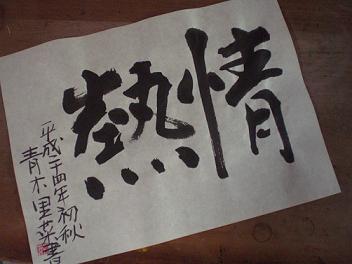 情熱
平成十四年初秋
青木里菜書